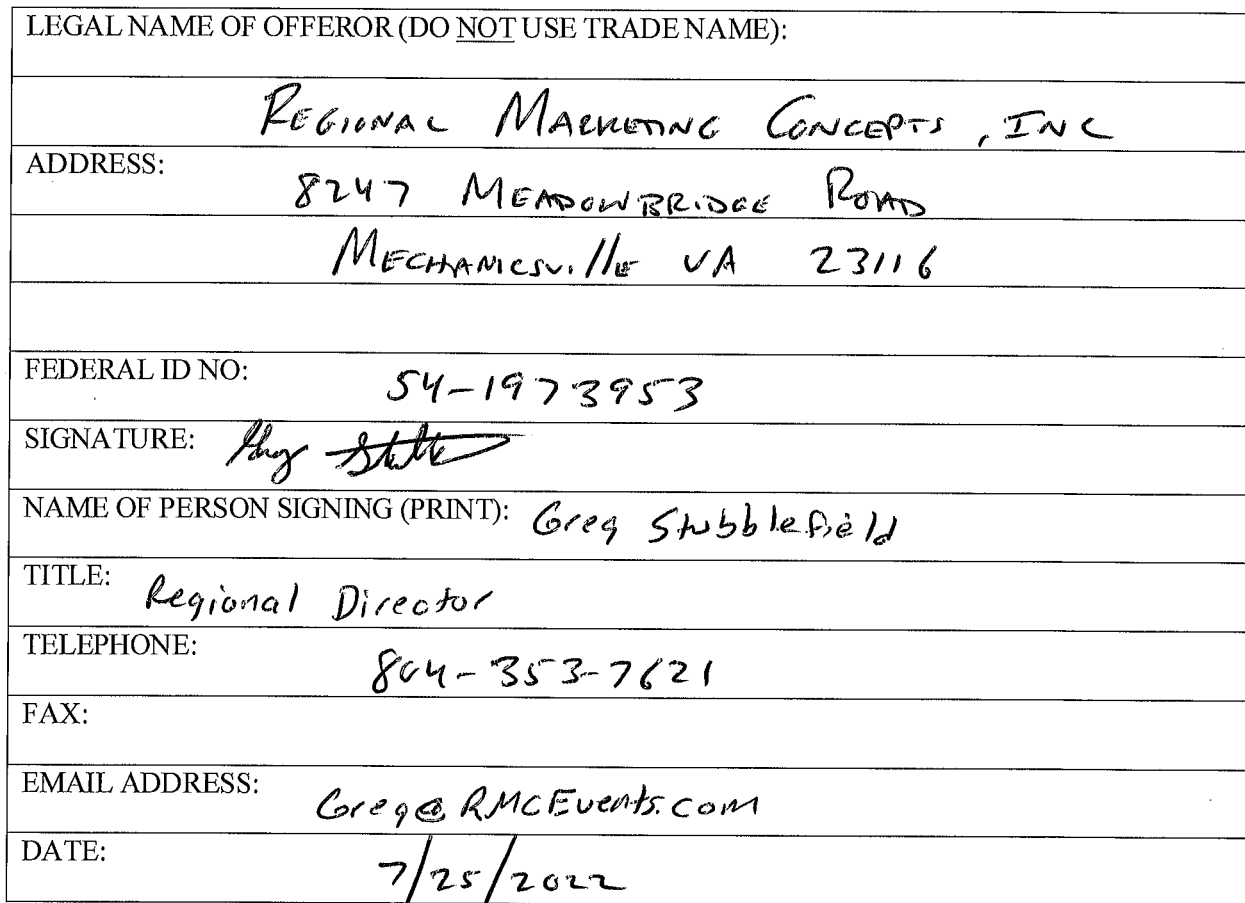 LEGAL NAME OF OFFEROR (DO NOT USE TRADE NAME):
REGIONAL MARKETING CONCEPTS, INC
ADDRESS:
8247 MEADOWBRIDGE ROAD
MECHANICSVIllE VA 23116
FEDERAL ID NO: 54-1973953
SIGNATURE: Greg
NAME OF PERSON SIGNING (PRINT): Greg Stubblefield
TITLE: Regional Director
TELEPHONE: 804-353-7621
FAX:
EMAIL ADDRESS: Greg@RMCEvents.com
DATE: 7/25/2022